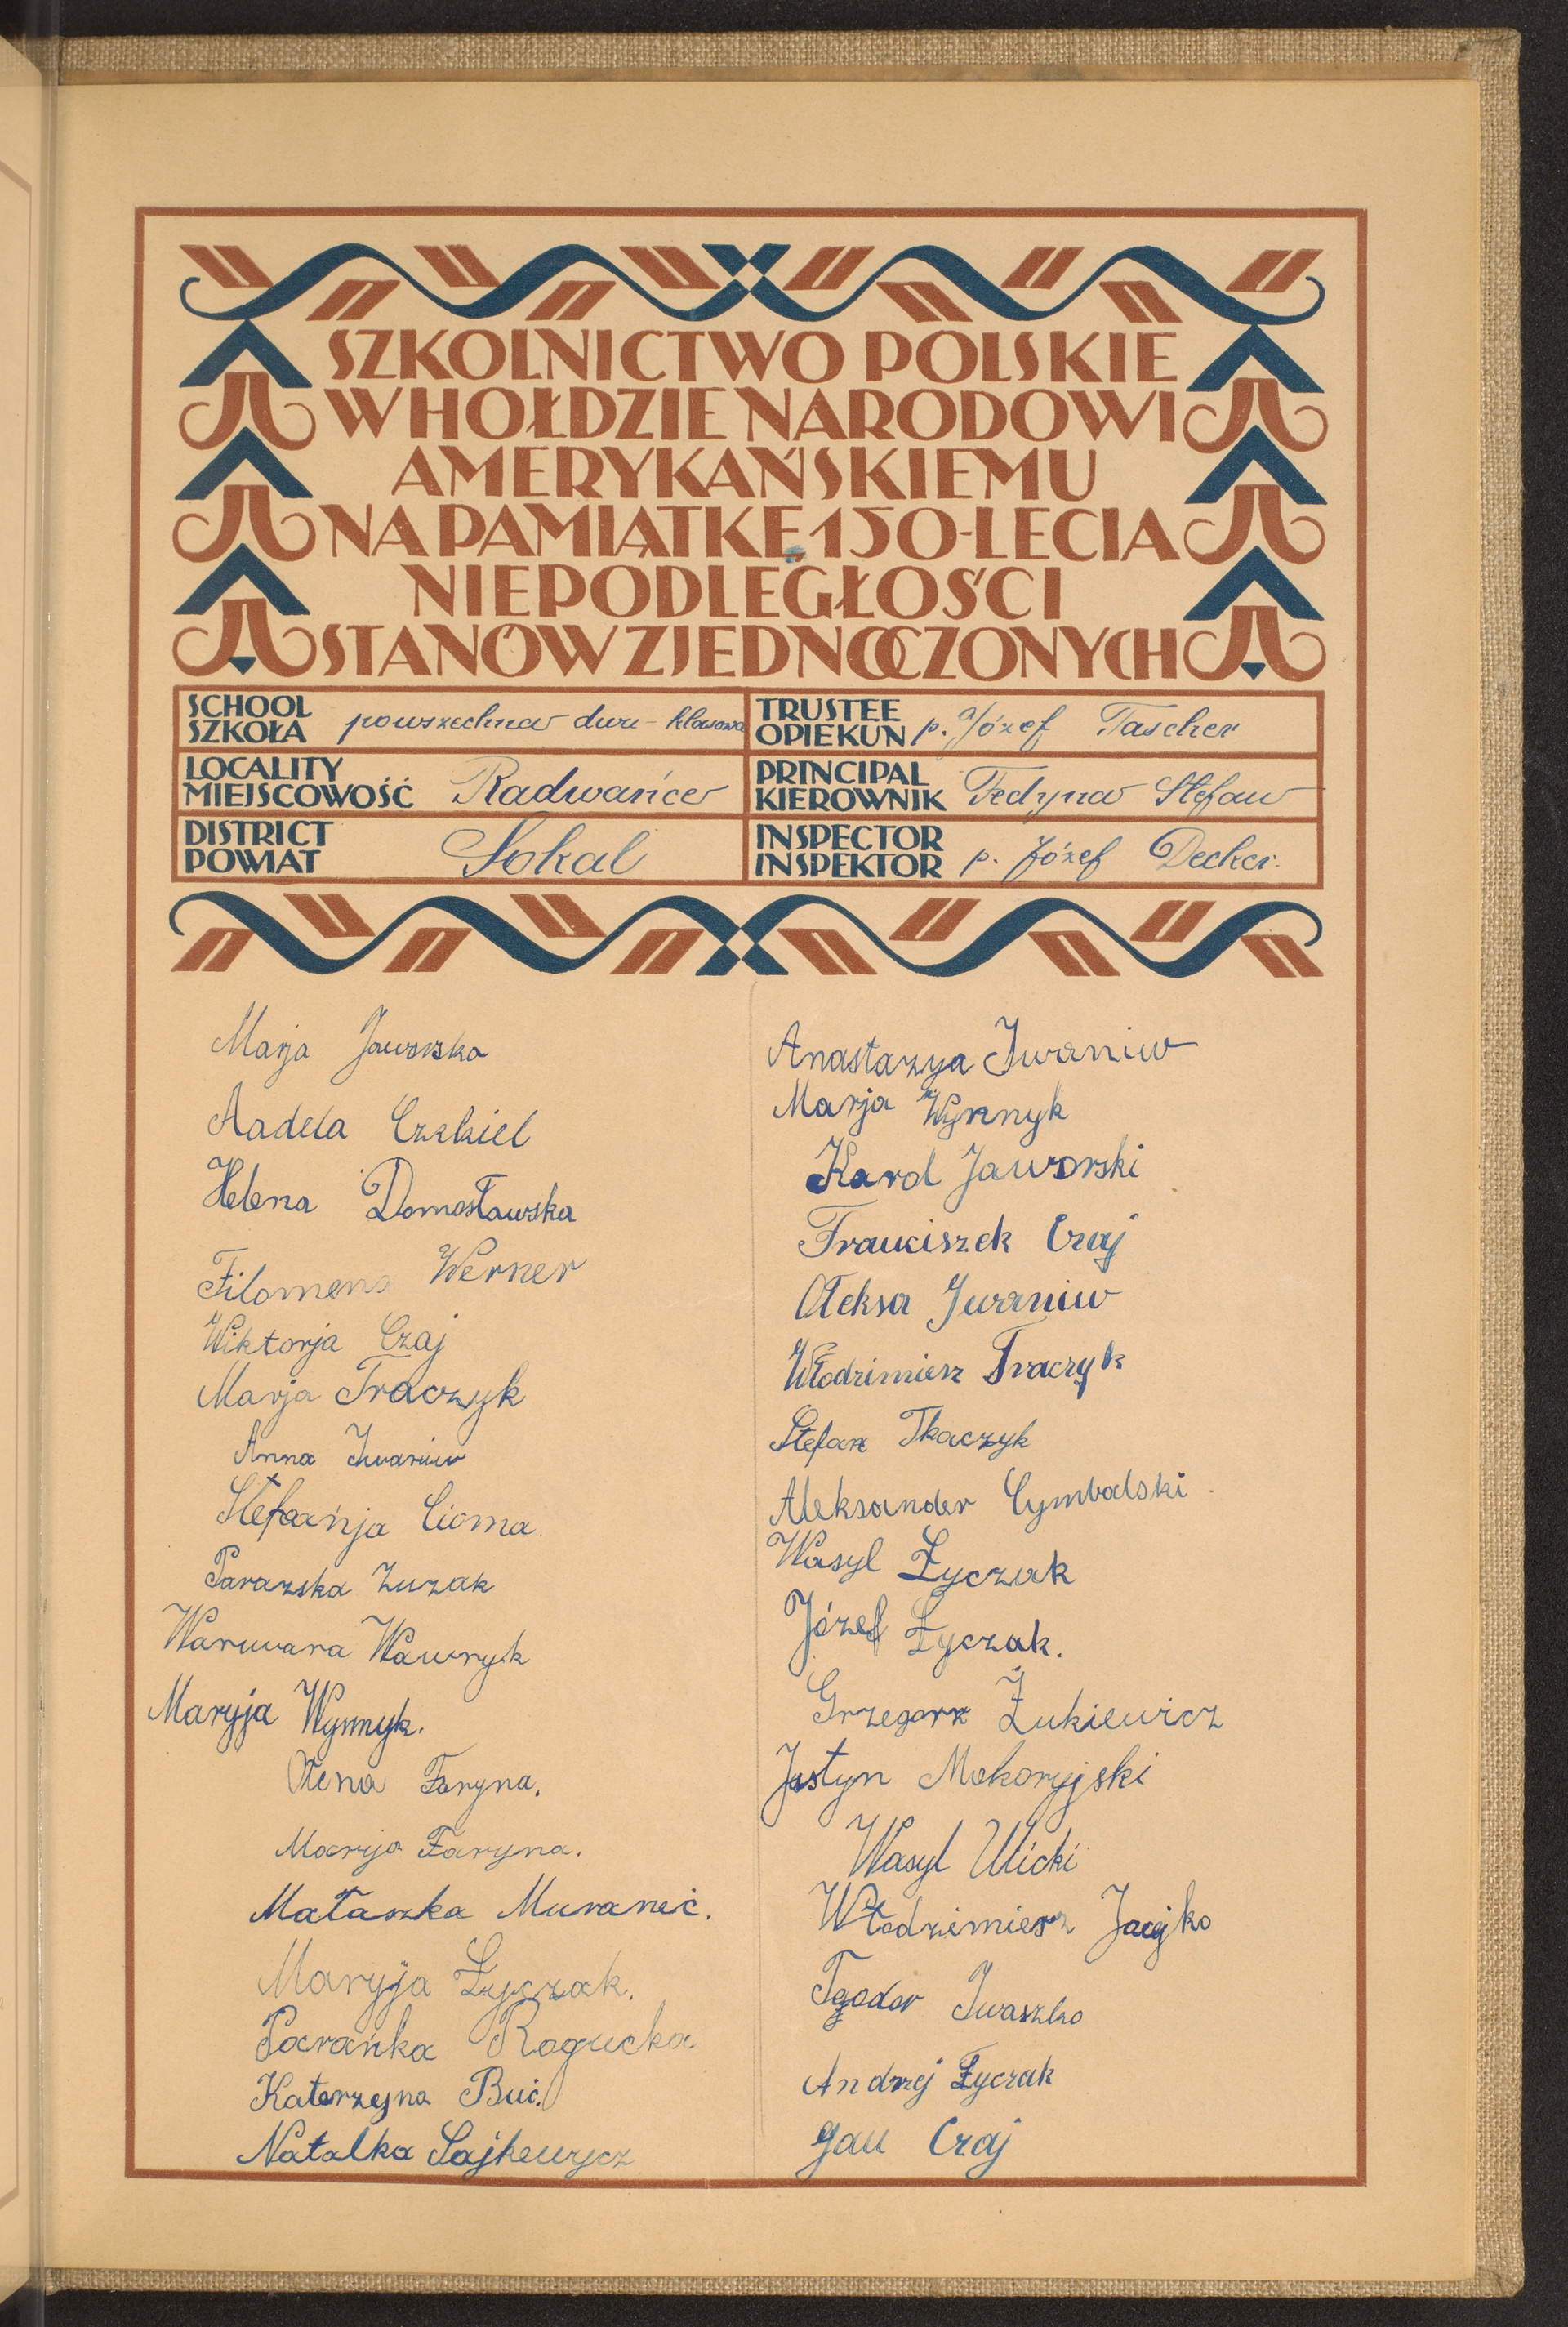 SZKOLNICTWO POLSKIE
W HOŁDZIE NARODOWI
AMERYKAŃSKIEMU
NA PAMIĄTKĘ 150-LECIA
NIEPODLEGŁOŚCI
STANÓW ZJEDNOCZONYCH
SCHOOL
SZKOŁA powszechna dwu-klasowa
TRUSTEE
OPIEKUN p. Józef Tascher
LOCALITY
MIEJSCOWOŚĆ Radwańce
PRINCIPAL
KIEROWNIK Fedyna Stefan
DISTRICT
POWIAT Sokal
INSPECTOR
INSPEKTOR p. Józef Decker
Marja Jaworska
Aadela Czekiel
Helena Domosławska
Filomena Werner
Wiktorja Czaj
Marja Traczyk
Anna Iwaniw
Stefanja Cioma.
Paraszka Zuzak
Warwara Wawryk
Maryja Wyrnyk.
Ołena Faryna.
Marija Faryna.
Małaszka Muraneć.
Maryja Łyczak.
Parańka Rogucka.
Katerzyna Buć.
Natalka Sajkewycz
Anastazya Iwaniw
Marja Wyrnyk
Karol Jaworski
Franciszek Czaj
Ołeksa Iwaniw
Włodzimierz Traczyk
Stefan Tkaczyk
Aleksander Cymbalski.
Wasyl Łyczak
Józef Łyczak.
Grzegorz Żukiewicz
Justyn Mokoryjski
Wasyl Ulicki
Włodzimierz Jacejko
Teodor Iwaszko
Andrzej Łyczak
Jan Czaj